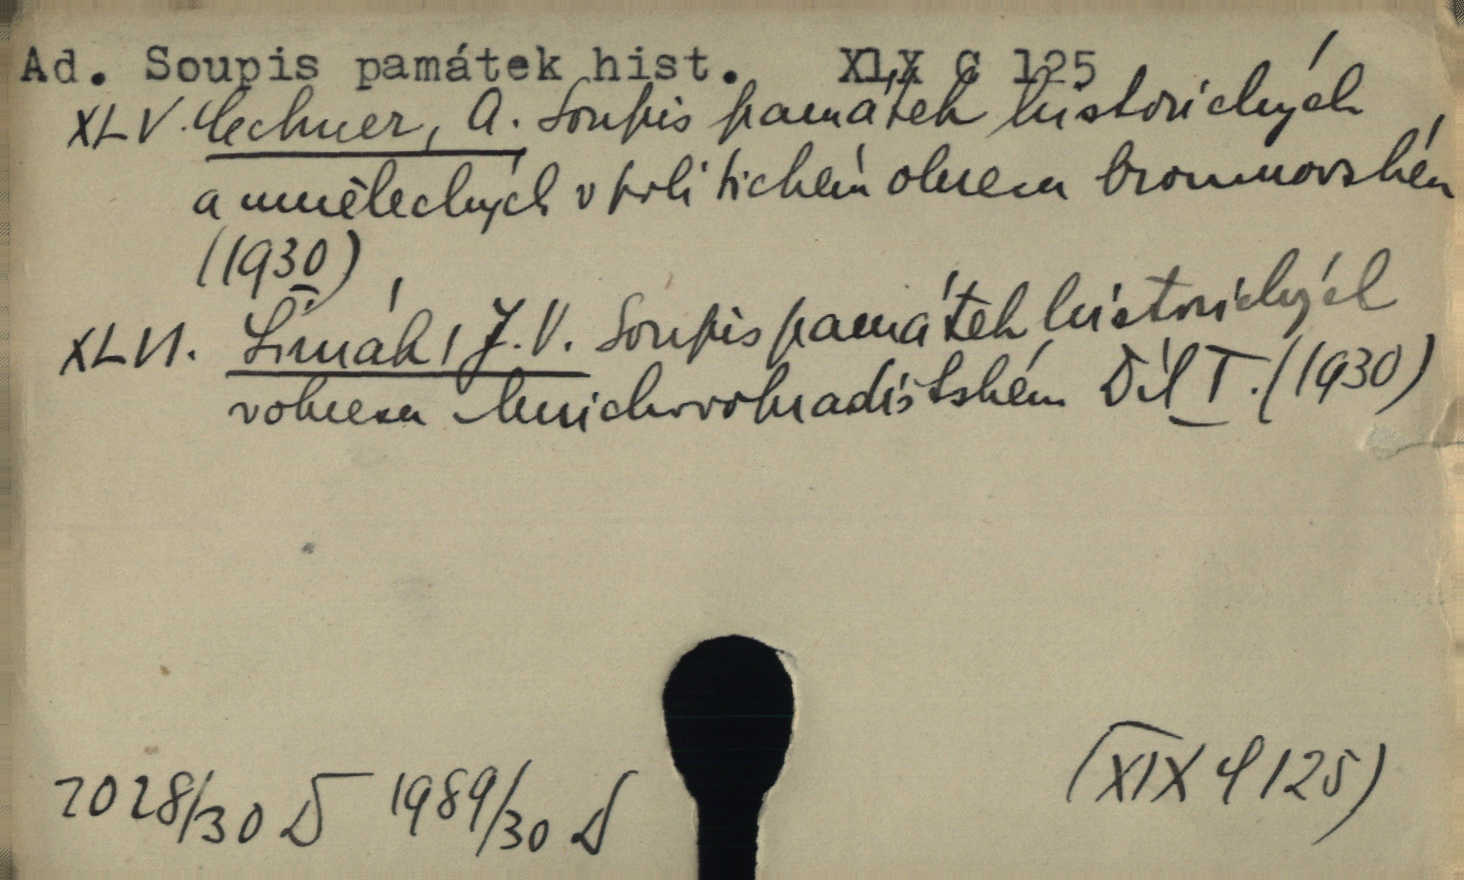 Ad. Soupis památek hist. XIX G 125
XLV. Cechner, A. Soupis památek historických
a uměleckých v politickém okresu broumovském
(1930)
XLVI. Šimák, J.V. Soupis památek historických
v okresu Mnichovohradištském Díl I. (1930)
2028/30 D 1989/30 D
(XIX G 125)